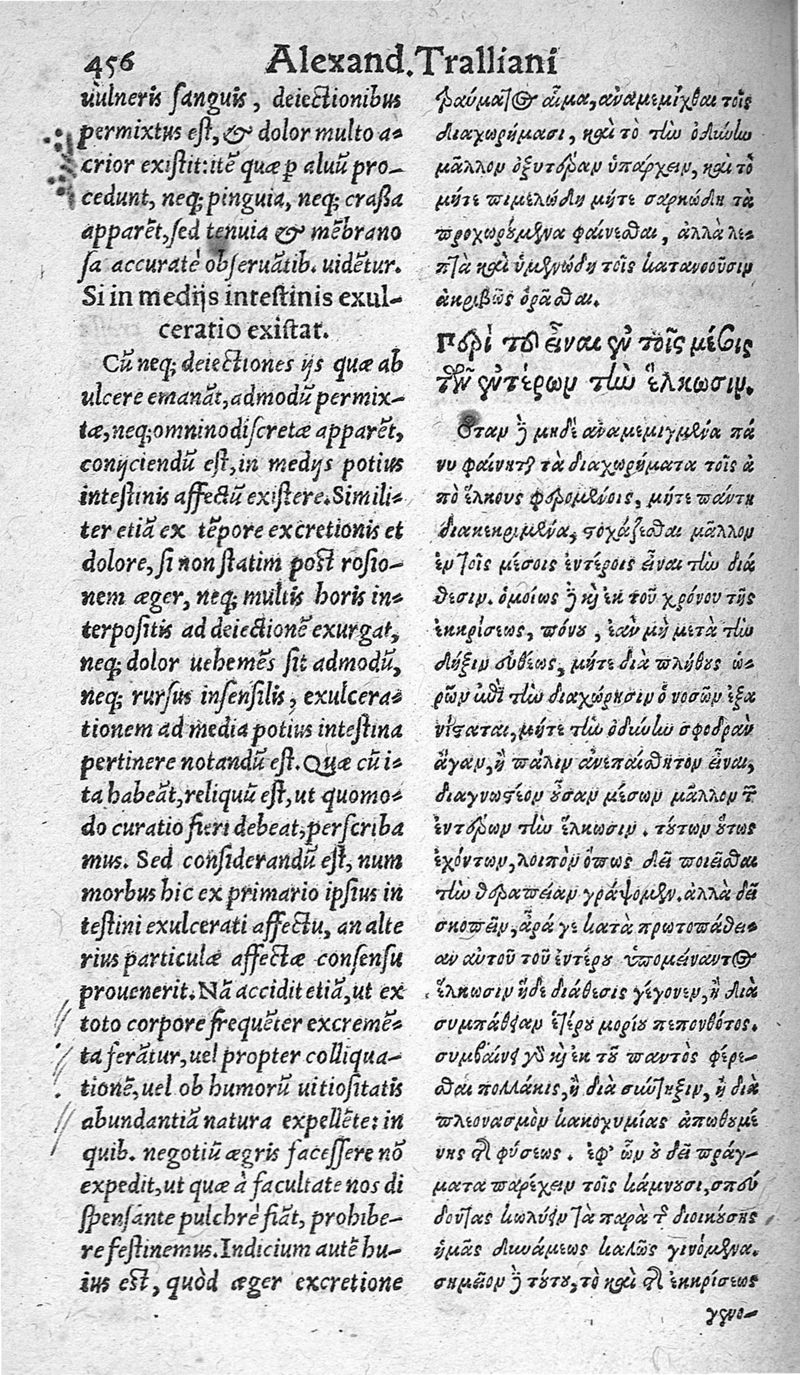 456 Alexand. Tralliani
uulneris sanguis, deiectionibus
permixtus est, & dolor multo a-
crior existit: itē quæ p aluū pro-
cedunt, neq; pinguia, neq; crassa
apparēt, sed tenuia & mēbrano
sa accuratè obseruātib. uidētur.
Si in medijs intestinis exul-
ceratio existat.
Cū neq; deiectiones ijs quæ ab
ulcere emanāt, admodū permix-
tæ, neq; omnino discretæ apparēt,
conijciendū est, in medijs potius
intestinis affectū existere. Simili-
ter etiā ex tēpore excretionis et
dolore, si non statim post rosio-
nem æger, neq; multis horis in-
terpositis ad deiectionē exurgat,
neq; dolor uehemēs sit admodū,
neq; rursus insensilis, exulcera-
tionem ad media potius intestina
pertinere notandū est. Quæ cū i-
ta habeāt, reliquū est, ut quomo-
do curatio fieri debeat, perscriba
mus. Sed considerandū est, num
morbus hic ex primario ipsius in
testini exulcerati affectu, an alte
rius particulæ affectæ consensu
prouenerit. Nā accidit etiā, ut ex
toto corpore frequēter excremē-
ta ferātur, uel propter colliqua-
tionē, uel ob humorū uitiositatis
abundantiā natura expellēte: in
quib. negotiū ægris facessere nō
expedit, ut quæ à facultate nos di
spensante pulchrè fiāt, prohibe-
re festinemus. Indicium autē hu-
ius est, quòd æger excretione
θραύματος αἷμα, ἀναμεμίχθαι τοῖς
διαχωρήμασι, καὶ τὸ τὴν ὀδύνην
μᾶλλον ὀξυτέραν ὑπάρχειν, καὶ τὸ
μήτε πιμελώδη μήτε σαρκώδη τὰ
προχωρούμενα φαίνεσθαι, ἀλλὰ λε-
πτὰ καὶ ὑμενώδη τοῖς κατανοοῦσιν
ἀκριβῶς ὁρᾶσθαι.
Περὶ τοῦ εἶναι ἐν τοῖς μέσοις
τῶν ἐντέρων τὴν ἕλκωσιν.
Ὅταν δὲ μηδὲ ἀναμεμιγμένα πά
νυ φαίνηται τὰ διαχωρήματα τοῖς ἀ
πὸ ἕλκους φερομένοις, μήτε πάντη
διακεκριμένα, στοχάζεσθαι μᾶλλον
ἐν τοῖς μέσοις ἐντέροις εἶναι τὴν διά
θεσιν. ὁμοίως δὲ καὶ ἐκ τοῦ χρόνου τῆς
ἐκκρίσεως, πόνου, ἐὰν μὴ μετὰ τὴν
δῆξιν εὐθέως, μήτε διὰ πλήθους ὡ-
ρῶν ἐπὶ τὴν διαχώρησιν ὁ νοσῶν ἐξα
νίσταται, μήτε τὴν ὀδύνην σφοδρὰν
ἄγαν, ἢ πάλιν ἀνεπαίσθητον εἶναι,
διαγνωστέον οὖσαν μέσων μᾶλλον τῶν
ἐντέρων τὴν ἕλκωσιν. τούτων οὕτως
ἐχόντων, λοιπὸν ὅπως δεῖ ποιεῖσθαι
τὴν θεραπείαν γράψομεν. ἀλλὰ δεῖ
σκοπεῖν, ἆρά γε κατὰ πρωτοπάθει-
αν αὐτοῦ τοῦ ἐντέρου ὑπομείναντος
ἕλκωσιν ἥδε διάθεσις γέγονεν, ἢ διὰ
συμπάθειαν ἑτέρου μορίου πεπονθότος.
συμβαίνει γὰρ καὶ ἐκ τοῦ παντὸς φέρε-
σθαι πολλάκις, ἢ διὰ σύντηξιν, ἢ διὰ
πλεονασμὸν κακοχυμίας ἀπωθουμέ
νης τῆς φύσεως. ἐφ' ὧν οὐ δεῖ πράγ-
ματα παρέχειν τοῖς κάμνουσι, σπεύ
δοντας κωλύειν τὰ παρὰ τῆς διοικούσης
ἡμᾶς δυνάμεως καλῶς γινόμενα.
σημεῖον δὲ τούτου, τὸ καὶ τῆς ἐκκρίσεως
γενο-